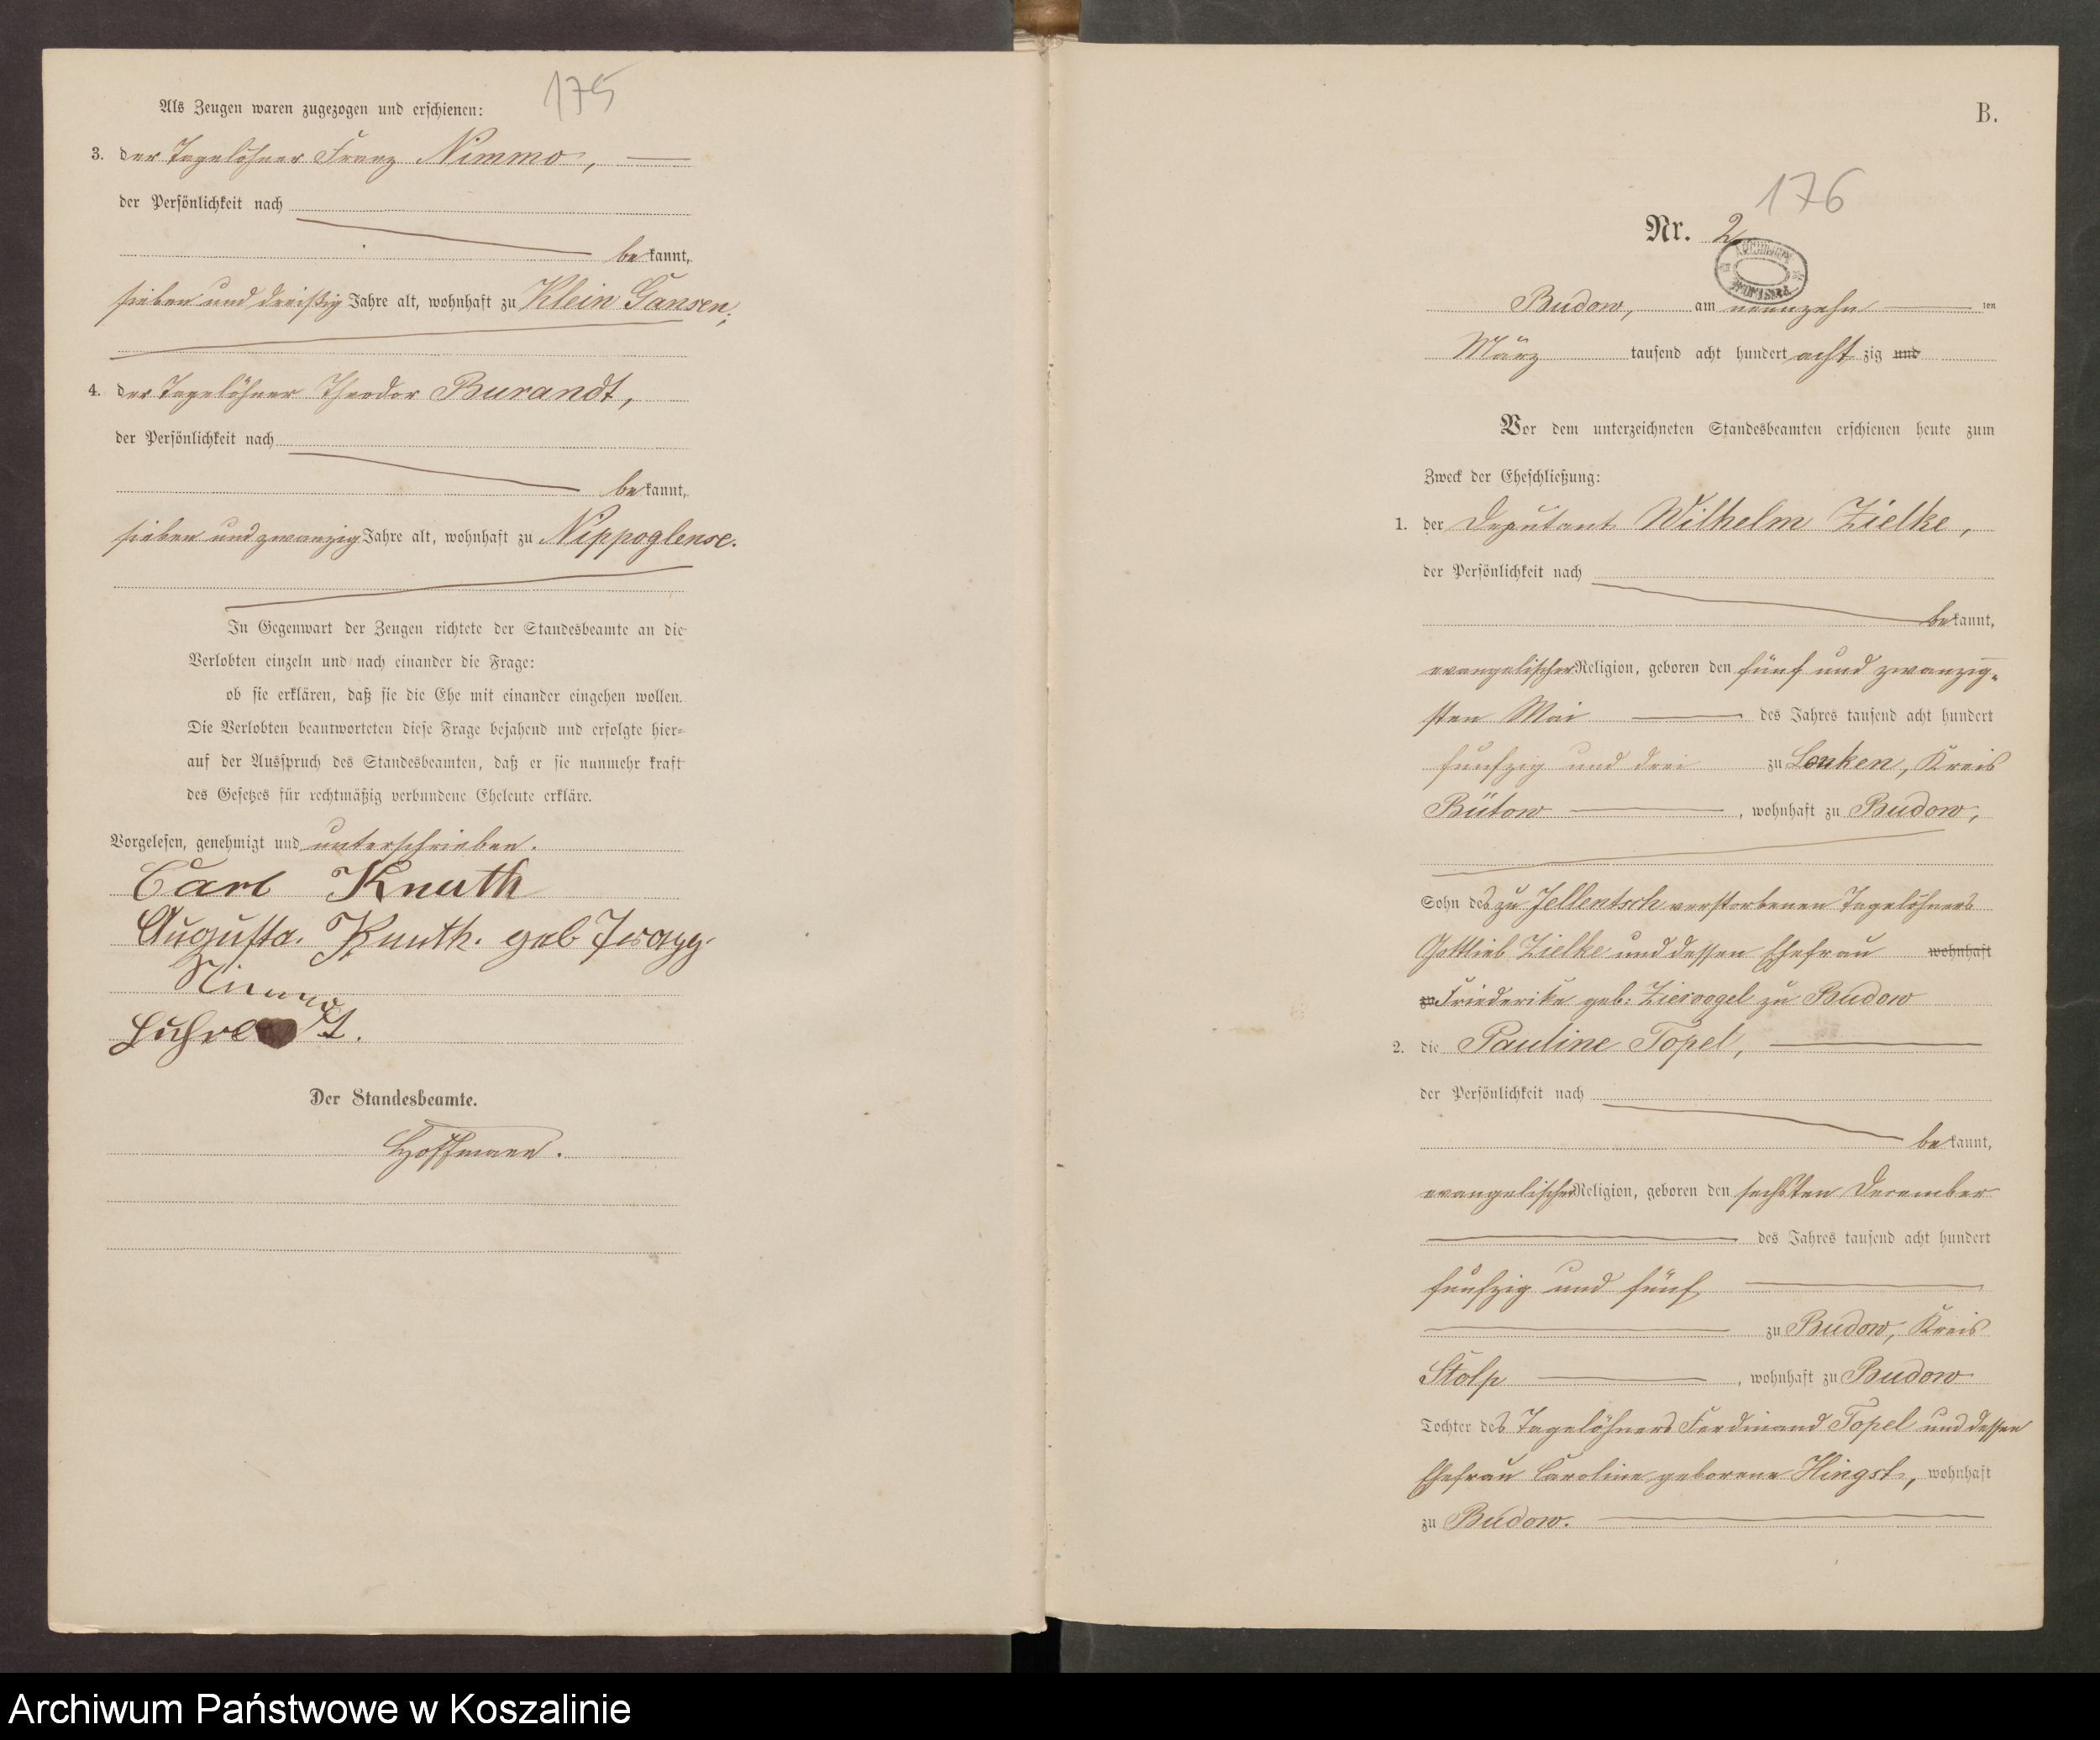 175
Als Zeugen waren zugezogen und erschienen:
3. der Tagelöhner Franz Nimmo,
der Persönlichkeit nach
bekannt,
sieben und dreißig Jahre alt, wohnhaft zu Klein Gansen,
4. der Tagelöhner Theodor Burandt,
der Persönlichkeit nach
bekannt,
sieben und zwanzig Jahre alt, wohnhaft zu Nippoglense.
In Gegenwart der Zeugen richtete der Standesbeamte an die
Verlobten einzeln und nach einander die Frage:
ob sie erklären, daß sie die Ehe mit einander eingehen wollen.
Die Verlobten beantworteten diese Frage bejahend und erfolgte hier-
auf der Ausspruch des Standesbeamten, daß er sie nunmehr kraft
des Gesetzes für rechtmäßig verbundene Eheleute erkläre.
Vorgelesen, genehmigt und unterschrieben.
Carl Knuth
Augusta. Knuth. geb
Nimmo
Der Standesbeamte.
Hoffmann.
B.
176
Nr. 2
Budow, am neunzehn ten
März tausend acht hundert acht zig und
Vor dem unterzeichneten Standesbeamten erschienen heute zum
Zweck der Eheschließung:
1. der Deputant Wilhelm Zielke,
der Persönlichkeit nach
bekannt,
evangelischer Religion, geboren den fünf und zwanzig-
sten Mai des Jahres tausend acht hundert
funfzig und drei zu Lonken, Kreis
Bütow, wohnhaft zu Budow,
Sohn des zu Jellentsch verstorbenen Tagelöhners
Gottlieb Zielke und dessen Ehefrau wohnhaft
zu Friederike geb: Ziervogel zu Budow
2. die Pauline Topel,
der Persönlichkeit nach
bekannt,
evangelischer Religion, geboren den sechsten December
des Jahres tausend acht hundert
funfzig und fünf
zu Budow, Kreis
Stolp, wohnhaft zu Budow
Tochter des Tagelöhners Ferdinand Topel und dessen
Ehefrau Caroline geborene Hingst, wohnhaft
zu Budow.
Archiwum Państwowe w Koszalinie